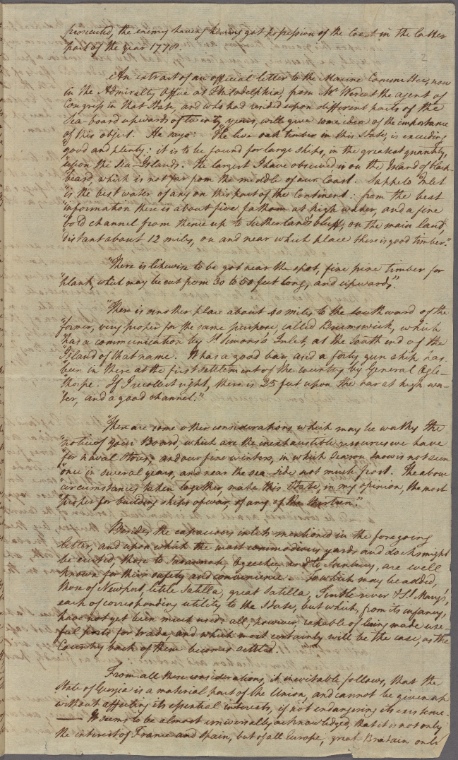 the enemy having got possession of the Coast in the latter
part of the year 1778.
An extract of an official letter to the Marine Committee, now
in the Admiralty Office at Philadelphia, from Mr Wereat the agent of
Congress in that State, and who had resided upon different parts of the
Sea-board upwards of twenty years, will give some idea of the importance
of this object. He says: "The live oak timber in this State, is exceeding
good and plenty; it is to be found for large ships, in the greatest quantity,
upon the Sea-Islands; the largest I have observed is on the Island of
which is not far from the middle of our Coast. Sappelo Inlet
is the best water of any on this part of the Continent: from the best
information there is about five fathom at high water, and a fine
bold channel from thence up to Sutherland's bluff, on the main land,
distant about 12 miles, on and near which place there is good timber."
"There is likewise to be got near the spot, fine pine timber for
plank, which may be cut from 30 to 50 feet long, and upwards."
"There is another place about 40 miles to the southward of the
former, very proper for the same purpose, called Brunswick, which
has a communication by St Simons's Inlet, at the South end of the
Island of that name. It has a good bar, and a forty gun ship has
been in there at the first settlement of the country by General Ogle-
thorpe. If I recollect right, there is 25 feet upon the bar at high wa-
ter, and a good channel."
"There are some other considerations which may be worthy the
notice of your Board, which are the inexhaustible resources we have
for naval stores, and our fine winters, in which season snow is not seen
once in several years, and near the sea-side, not much frost. The above
circumstances taken together, make this State, in my opinion, the most
proper for building ships of war, of any of the thirteen."
Besides the capacious inlets mentioned in the foregoing
letter, and upon which the most commodious yards and docks might
be erected, those to Savannah, Ogeechee, and Sunbury, are well
known for their safety and convenience. To which may be added,
those of Newport, little Satilla, great Satilla, Turtle river & St. Marys,
each of corresponding utility to the State, but which, from its infancy,
have not yet been much used; all, however, capable of being made use-
ful ports for trade, and which most certainly will be the case, as the
Country back of them becomes settled.
From all these considerations, it inevitably follows, that the
State of Georgia is a material part of the Union, and cannot be given up
without affecting its essential interests, if not endangering its existence.
It seems to be almost universally acknowledged, that it is not only
the interest of France and Spain, but of all Europe, great Britain only